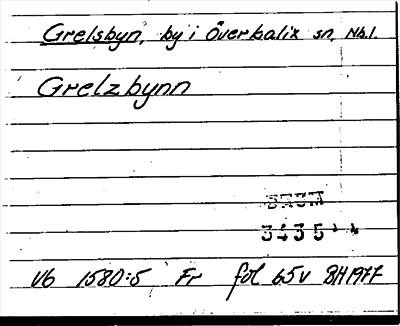 Grelsbyn, by i Överkalix sn, Nb.l.
Grelzbynn
3435
V6 1580:5 Fr fol 65v BH 1977